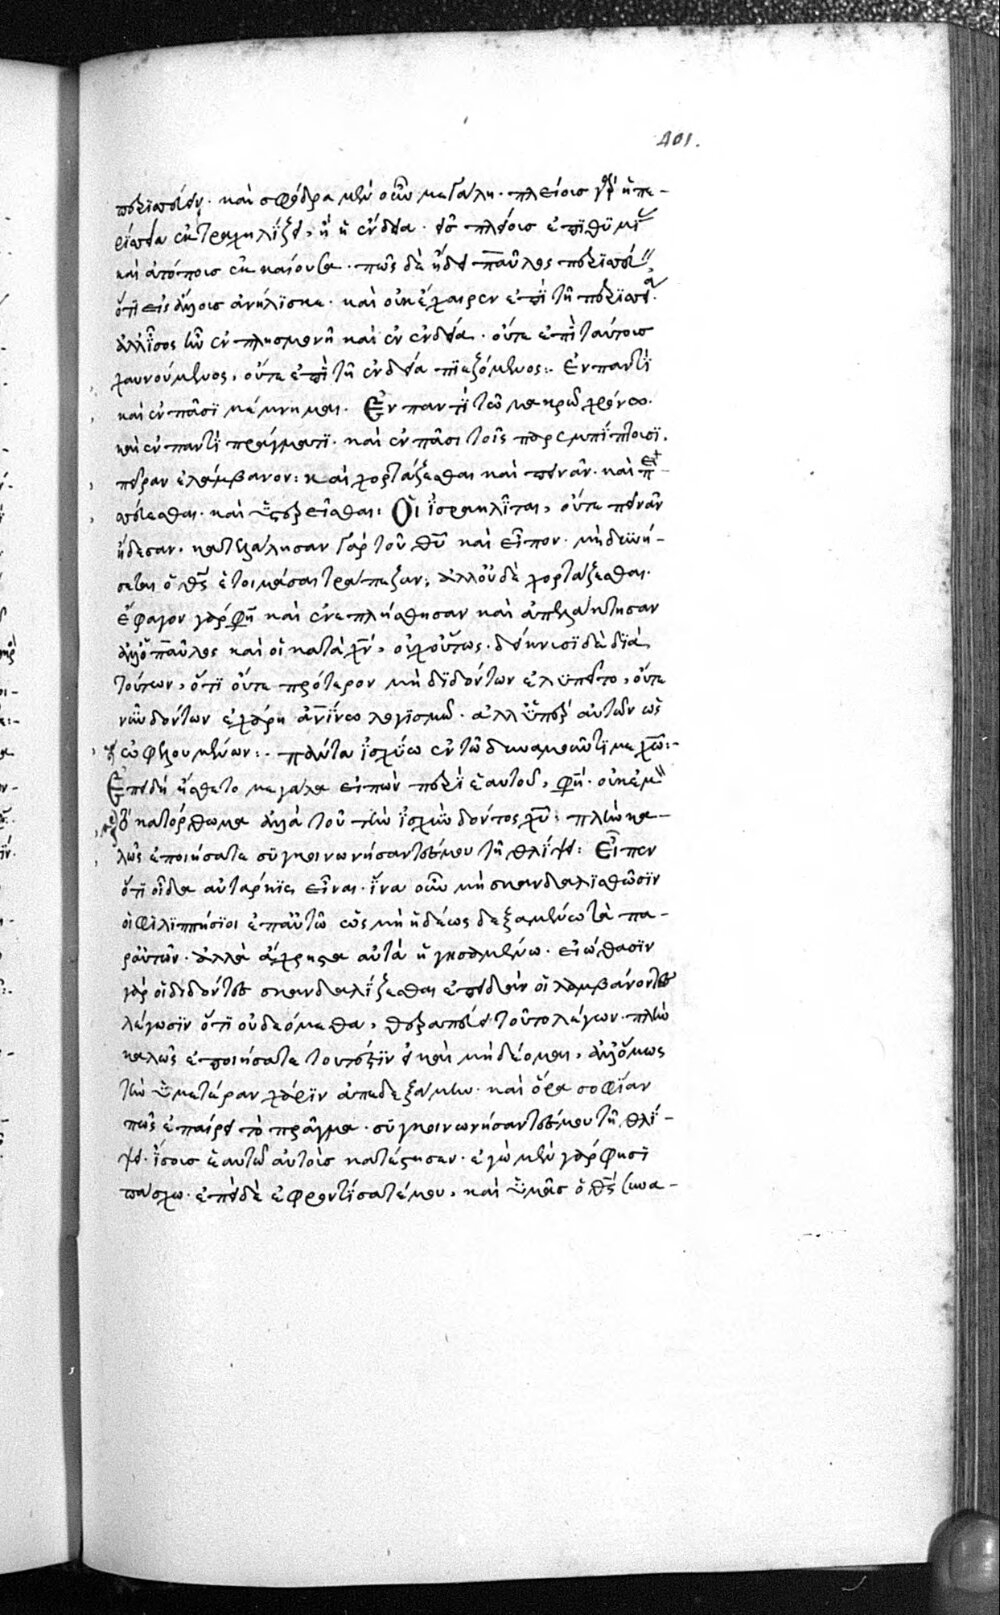 401.
περισσεύειν. καὶ σφόδρα μὲν οὖν μεγάλη. πλείους γὰρ ἡ πε-
ρίστα ἐκτραχηλίζει, ἢ ἡ ἔνδεια. τὸ πλέοις ἐπιθυμί
καὶ ἀτόποις ἐκκαίουσα. πῶς δὲ ᾔδει παῦλος περισσεύ
ὅτι εἰς ἄλλοις ἀνήλισκε. καὶ οὐκ ἔχαιρεν ἐπὶ τῇ περισσεί.
ἀλλ' ἴσος ἦν ἐν πλησμονῇ καὶ ἐν ἐνδεία. οὔτε ἐπὶ ταύτοις
χαυνούμενος, οὔτε ἐπὶ τῇ ἐνδεία πιεζόμενος: Εν παντὶ
καὶ ἐν πᾶσι μεμύημαι. Εν παντὶ τῶ μακρῶ χρόνω.
καὶ ἐν παντὶ πράγματι. καὶ ἐν πᾶσι τοῖς παρεμπίπτουσι.
πεῖραν ἐλάμβανον: καὶ χορτάζεσθαι καὶ πεινᾶν. καὶ π
σσεύεσθαι. καὶ ὑστερεῖσθαι: Οἱ ἰσραηλῖται, οὔτε πεινᾶν
ᾔδεσαν. κατελάλησαν γὰρ τοῦ θυ καὶ εἶπον. μὴ δυνή-
σεται ὁ θς ἑτοιμάσαι τράπεζαν; ἀλλ' οὐδὲ χορτάζεσθαι.
ἔφαγον γὰρ φη καὶ ἐνεπλήσθησαν καὶ ἀπελάκτησαν
ἀλλ' ὁ παῦλος καὶ οἱ κατὰ χν, οὐχ οὕτως. δείκνυσι δὲ διὰ
τούτων, ὅτι οὔτε πρότερον μὴ διδόντων ἐλυπεῖτο, οὔτε
νῦν δόντων ἐχάρη ἀνίνω λογισμῶ. ἀλλ' ὑπὲρ αὐτῶν ὡς
ὠφελουμένων: πάντα ἰσχύω ἐν τῶ δυναμοῦντί με χω:-
Επειδὴ ᾔσθετο μεγάλα εἰπὼν περὶ ἑαυτοῦ, φη. οὐκ ἐμ
ὸ κατόρθωμα ἀλλὰ τοῦ τὴν ἰσχὺν δόντος χυ: πλὴν κα-
λῶς ἐποιήσατε συγκοινωνήσαντές μου τῇ θλίψει: Εἶπεν
ὅτι οἶδα αὐτάρκης εἶναι. ἵνα οὖν μὴ σκανδαλισθῶσιν
οἱ φιλιππήσιοι ἐπ' αὐτῶ ὡς μὴ ἡδέως δεξαμένω τὰ πα-
ρ' αὐτῶν. ἀλλὰ ἄχρηστα αὐτὰ ἡγησαμένω. εἰώθασιν
γὰρ οἱ διδόντες σκανδαλίζεσθαι ἐπειδὰν οἱ λαμβάνοντες
λέγωσιν ὅτι οὐ δεόμεθα, θεραπεύει τοῦτο λέγων. πλὴν
καλῶς ἐποιήσατε τουτέστιν εἰ καὶ μὴ δέομαι, ἀλλ' ὅμως
τὴν ὑμετέραν χάριν ἀπεδεξάμην. καὶ ὅρα σοφίαν
πῶς ἐπαίρει τὸ πρᾶγμα. συγκοινωνήσαντές μου τῇ θλί-
ψει. ἴσους ἑαυτῶ αὐτοὺς κατέστησεν. ἐγὼ μὲν γάρ φησι
πάσχω. ἐπεὶ δὲ ἐφροντίσατέ μου, καὶ ὑμᾶς ὁ θς συνα-